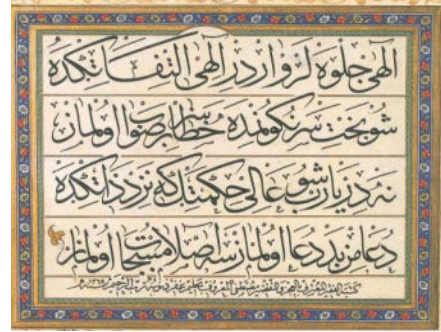 الهی جلوه لر وار در الهی التفاتكده
شو بخت سرنكونمده خطاسز بر صواب اولماز
نه در یارب شو عالی حكمتك كه نزد ذاتكده
دعامز بد دعا اولمازسه اصلا مستجاب اولماز
كتبه الفقير